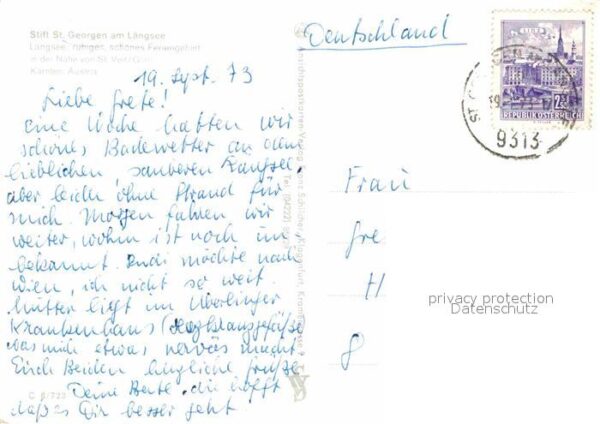 Stift St. Georgen am Längsee
Längsee: ruhiges, schönes Feriengebiet
in der Nähe von St. Veit/Glan
Kärnten, Austria
19. Sept. 73
Liebe Grete!
Eine Woche hatten wir
schönes Badewetter an dem
lieblichen, sauberen Längsee,
aber leider ohne Strand für
mich. Morgen fahren wir
weiter, wohin ist noch un-
bekannt. Rudi möchte nach
Wien, ich nicht so weit.
Mutter liegt im Überlinger
Krankenhaus (Herzkranzgefäße
was mich etwas nervös macht.
Euch Beiden herzliche Grüße
Deine Berte, die hofft
daß es Dir besser geht
C 8/723
Deutschland
LINZ
REPUBLIK ÖSTERREICH
9313
Frau
Gre
H
8
privacy protection
Datenschutz